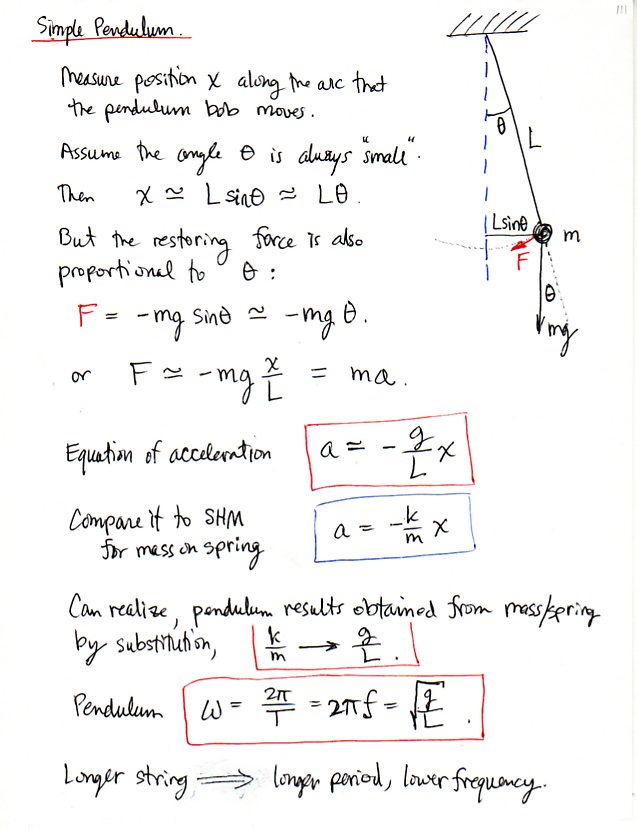 Simple Pendulum.
Measure position x along the arc that
the pendulum bob moves.
Assume the angle θ is always "small".
Then x ≃ L sinθ ≃ Lθ.
But the restoring force is also
proportional to θ :
F = -mg sinθ ≃ -mg θ.
or F ≃ -mg x/L = ma.
Equation of acceleration a ≃ - g/L x
Compare it to SHM
for mass on spring a = - k/m x
Can realize, pendulum results obtained from mass/spring
by substitution, k/m → g/L .
Pendulum ω = 2π/T = 2πf = √g/L .
Longer string ⟹ longer period, lower frequency.
θ
L
Lsinθ
m
F
θ
mg